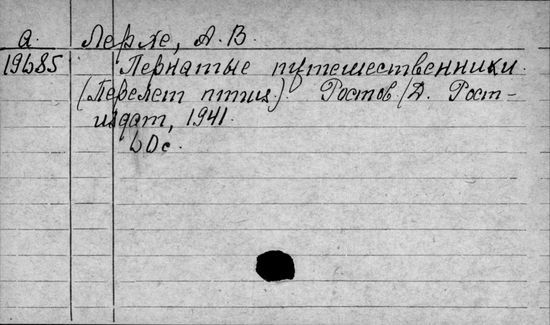 а. Лерхе, А. В.
19685 Пернатые путешественники.
(Перелет птиц). Ростов / Д. Рост-
издат, 1941.
60 с.